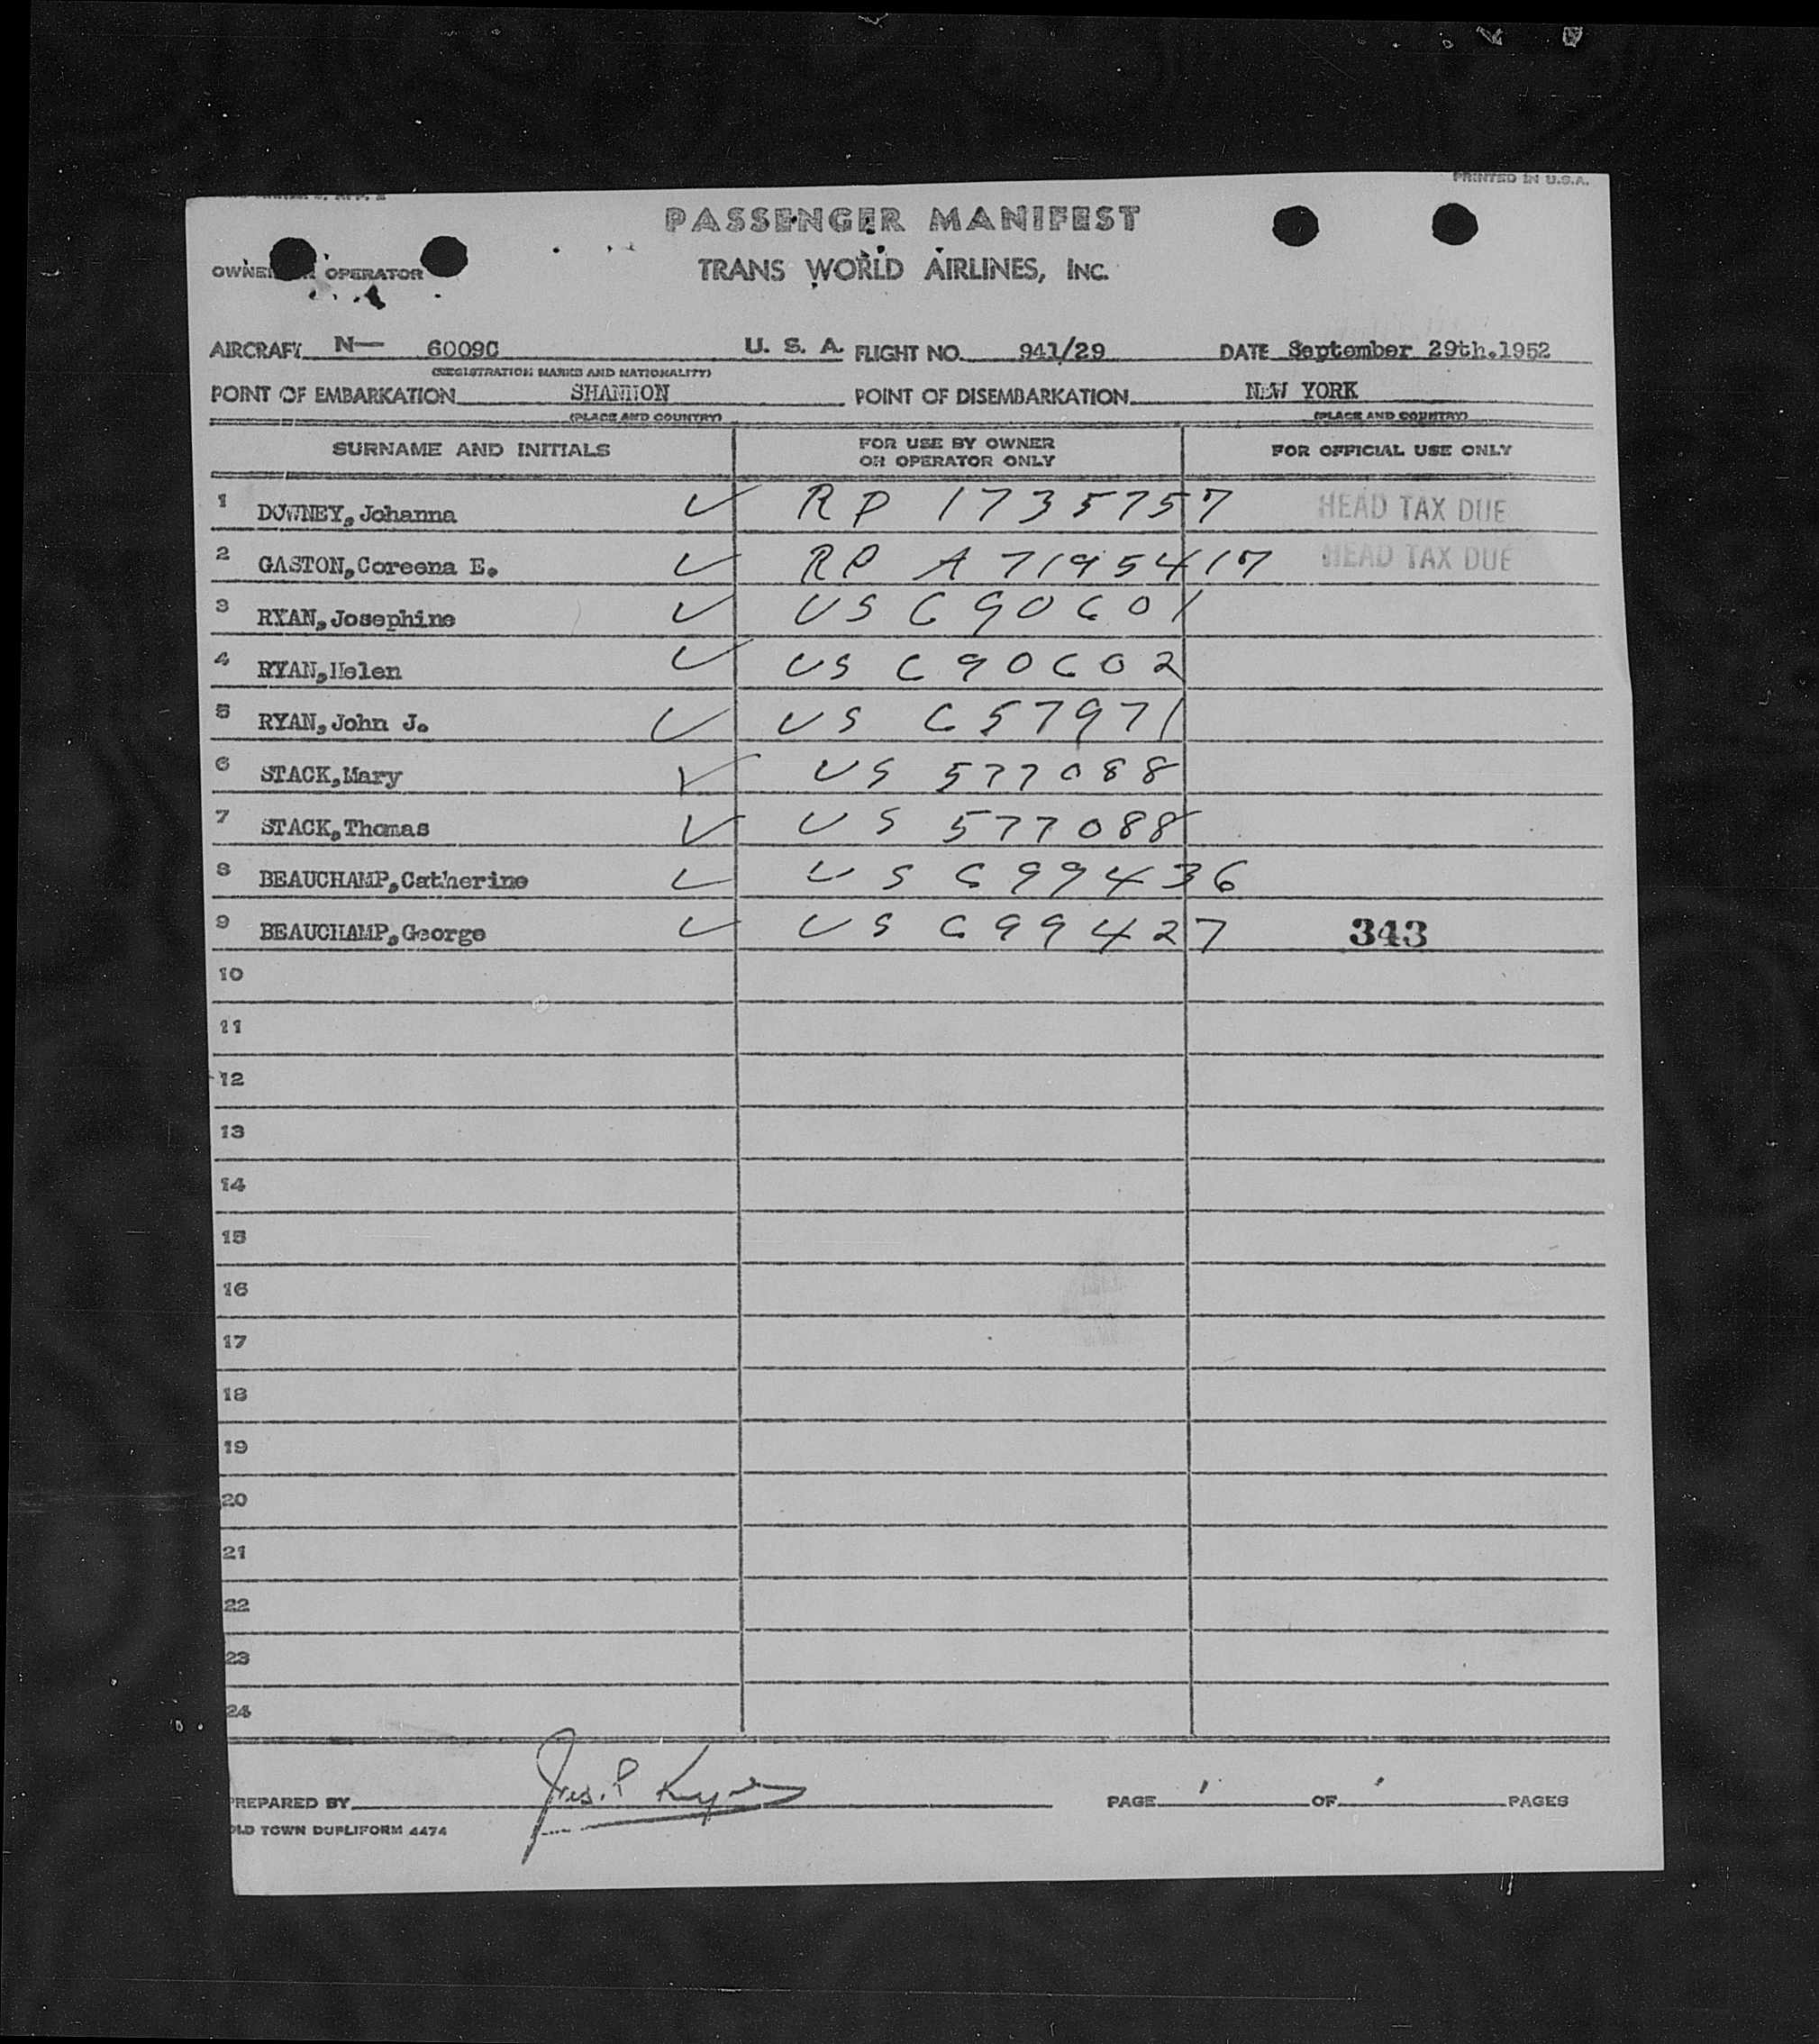 PRINTED IN U.S.A.
PASSENGER MANIFEST
OPERATOR
TRANS WORLD AIRLINES, INC.
AIRCRAFT N— 6009C U. S. A. FLIGHT NO. 941/29 DATE September 29th.1952
(REGISTRATION MARKS AND NATIONALITY)
POINT OF EMBARKATION SHANNON POINT OF DISEMBARKATION NEW YORK
(PLACE AND COUNTRY) (PLACE AND COUNTRY)
SURNAME AND INITIALS FOR USE BY OWNER OR OPERATOR ONLY FOR OFFICIAL USE ONLY
1 DOWNEY,Johanna ✓ RP 1735757 HEAD TAX DUE
2 GASTON,Coreena E. ✓ RP A 7195417 HEAD TAX DUE
3 RYAN,Josephine ✓ US C 90601
4 RYAN,Helen ✓ US C 90602
5 RYAN,John J. ✓ US C57971
6 STACK,Mary ✓ US 577088
7 STACK,Thomas ✓ US 577088
8 BEAUCHAMP,Catherine ✓ US C99436
9 BEAUCHAMP,George ✓ US C99427 343
10
11
12
13
14
15
16
17
18
19
20
21
22
23
24
PREPARED BY PAGE 1 OF 1 PAGES
OLD TOWN DUPLIFORM 4474